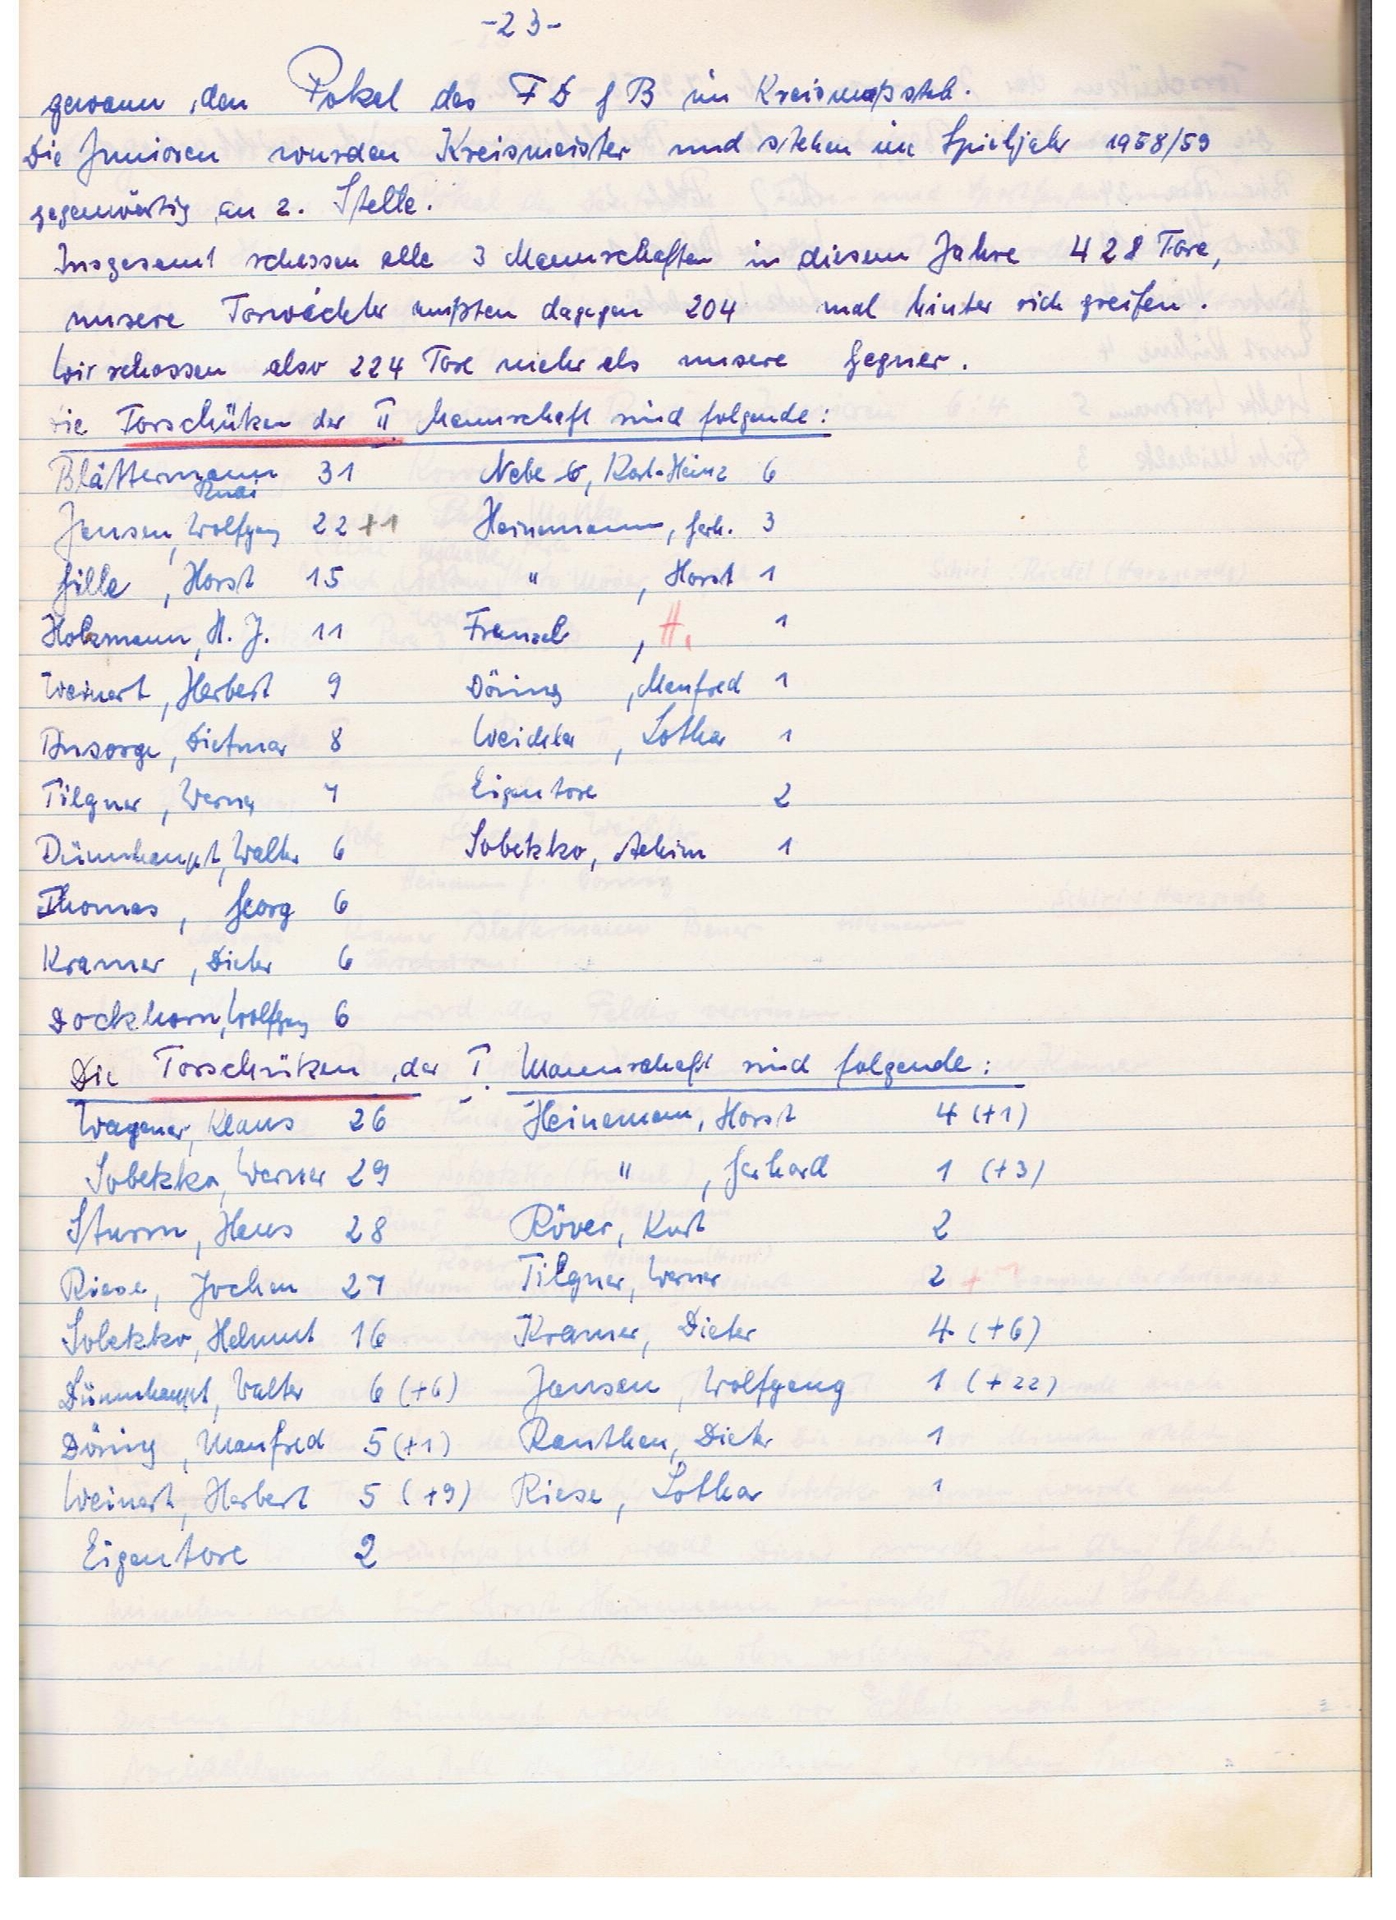 -23-
gewann den Pokal des FDGB im Kreismaßstab.
Die Junioren wurden Kreismeister und stehen im Spieljahr 1958/59
gegenwärtig an 2. Stelle.
Insgesamt schossen alle 3 Mannschaften in diesem Jahre 428 Tore,
unsere Torwächter mußten dagegen 204 mal hinter sich greifen.
Wir schossen also 224 Tore mehr als unsere Gegner.
Die Torschützen der II. Mannschaft sind folgende:
Blättermann 31 Nebe, Karl-Heinz 6
Rudi
Jansen, Wolfgang 22 +1 Heinemann, Gerh. 3
Gille, Horst 15 " , Horst 1
Holzmann, H. J. 11 , H. 1
Weinert, Herbert 9 Döring, Manfred 1
Ansorge, Dietmar 8 Weichler, Lothar 1
Tilgner, Werner 7 Eigentore 2
Dünnhaupt, Walter 6 Sobetzko, Achim 1
Thomas, Georg 6
Kramer, Dieter 6
Dockhorn, Wolfgang 6
Die Torschützen der I. Mannschaft sind folgende:
Wagener, Klaus 26 Heinemann, Horst 4 (+1)
Sobetzko, Werner 29 " , Gerhard 1 (+3)
Sturm, Hans 28 Röver, Kurt 2
Riese, Jochen 27 Tilgner, Werner 2 + 7
Sobetzko, Helmut 16 Kramer, Dieter 4 (+6)
Dünnhaupt, Walter 6 (+6) Jansen, Wolfgang 1 (+22)
Döring, Manfred 5 (+1) Ranthen, Dieter 1
Weinert, Herbert 5 (+9) Riese, Lothar 1
Eigentore 2